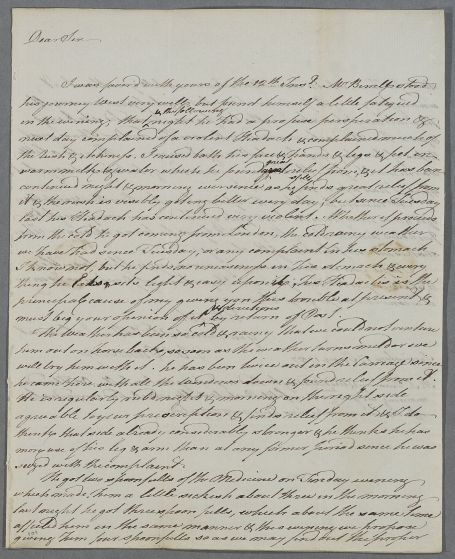 Dear Sir
I was favord with yours of the 12th Inst. Mr
his journey West very well, but found himself a little fatigued
& the following
in the evening, that night he had a profuse perspiration &
next day complained of a violent Headach, & complained much of
the itchiness. I caused bath his face & hands & legs & feet in
warm milk & water which he found great relief from, & it has been
continued night & morning ever since as he finds great relief from
it & the rash is visibly getting better every day, but since Tuesday
last his Headach has continued very violent. Whether it proceeds
from the cold he got coming from London, the cold rainy weather
we have had since Tuesday, or any complaint in his stomach
I know not, but he feels no uneasyness in his Stomach & every
thing he eats sits light & easy upon it, his Headach is the
principal cause of my giving you this trouble at present &
directions
must beg your opinion & by return of Post.
The weather has been so cold & rainy that we could not venture
him out on horseback, as soon as the weather turns milder we
will try him with it. he has been twice out in the Carriage since
he came here with all the Windows down & found relief from it.
He is regularly rubd night & morning on the right side
agreeable to your prescription & finds relief from it, & I do
think that side already considerably stronger & he thinks he has
more use of his leg & arm than at any former period since he was
seized with the complaint.
He got two spoonfulls of the Medicine on Sunday evening
which made him a little sickish about three in the morning
last night he got three spoonfulls, which about the same time
affected him in the same manner & this evening we propose
giving him four spoonfulls so as we may find out the proper